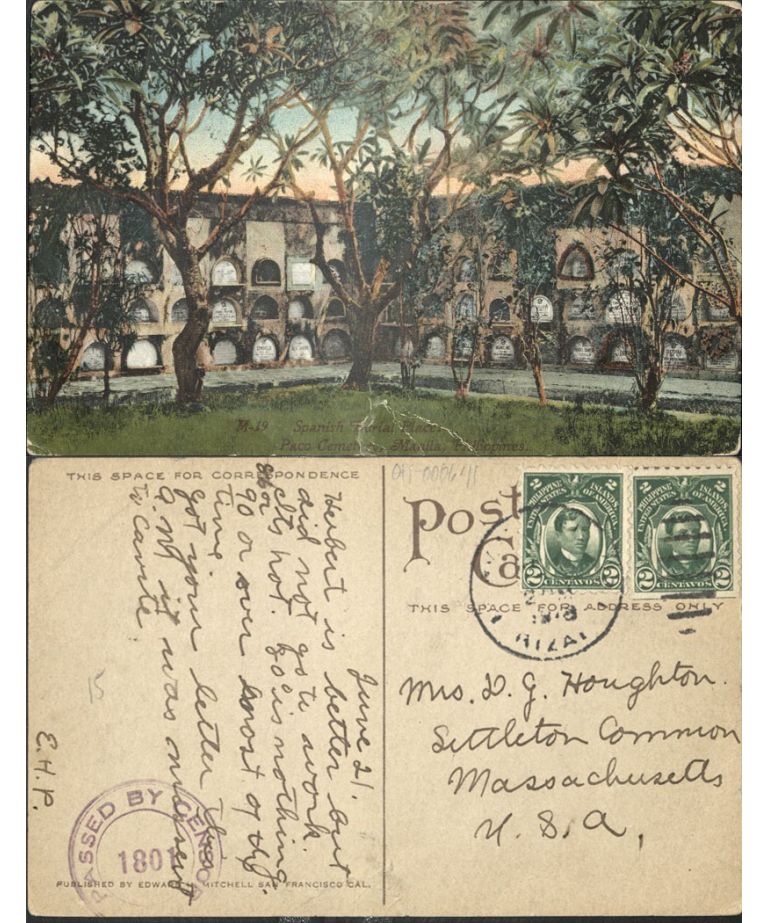 M-19 Spanish Burial Place,
Paco Cemetery, Manila, Philippines.
THIS SPACE FOR CORRESPONDENCE
June 21.
Herbert is better but
did not go to work.
its hot. 80° is nothing.
86 or
90 or over most of the
time.
Got your letter this
a.m. it was
to Cavite.
E.H.P.
15
PASSED BY CENSOR
1801
PUBLISHED BY EDWARD H. MITCHELL SAN FRANCISCO CAL.
Post
Ca
PHILIPPINE ISLANDS
UNITED STATES OF AMERICA
2 CENTAVOS 2
PHILIPPINE ISLANDS
UNITED STATES OF AMERICA
2 CENTAVOS 2
RIZAL
THIS SPACE FOR ADDRESS ONLY
Mrs. D. G. Houghton.
Littleton Common
Massachusetts
U.S.A,